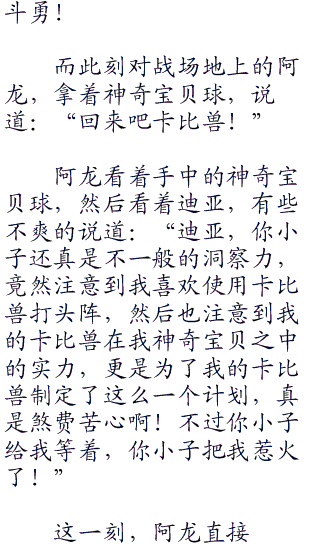 斗勇！
而此刻对战场地上的阿
龙，拿着神奇宝贝球，说
道：“回来吧卡比兽！”
阿龙看着手中的神奇宝
贝球，然后看着迪亚，有些
不爽的说道：“迪亚，你小
子还真是不一般的洞察力，
竟然注意到我喜欢使用卡比
兽打头阵，然后也注意到我
的卡比兽在我神奇宝贝之中
的实力，更是为了我的卡比
兽制定了这么一个计划，真
是煞费苦心啊！不过你小子
给我等着，你小子把我惹火
了！”
这一刻，阿龙直接